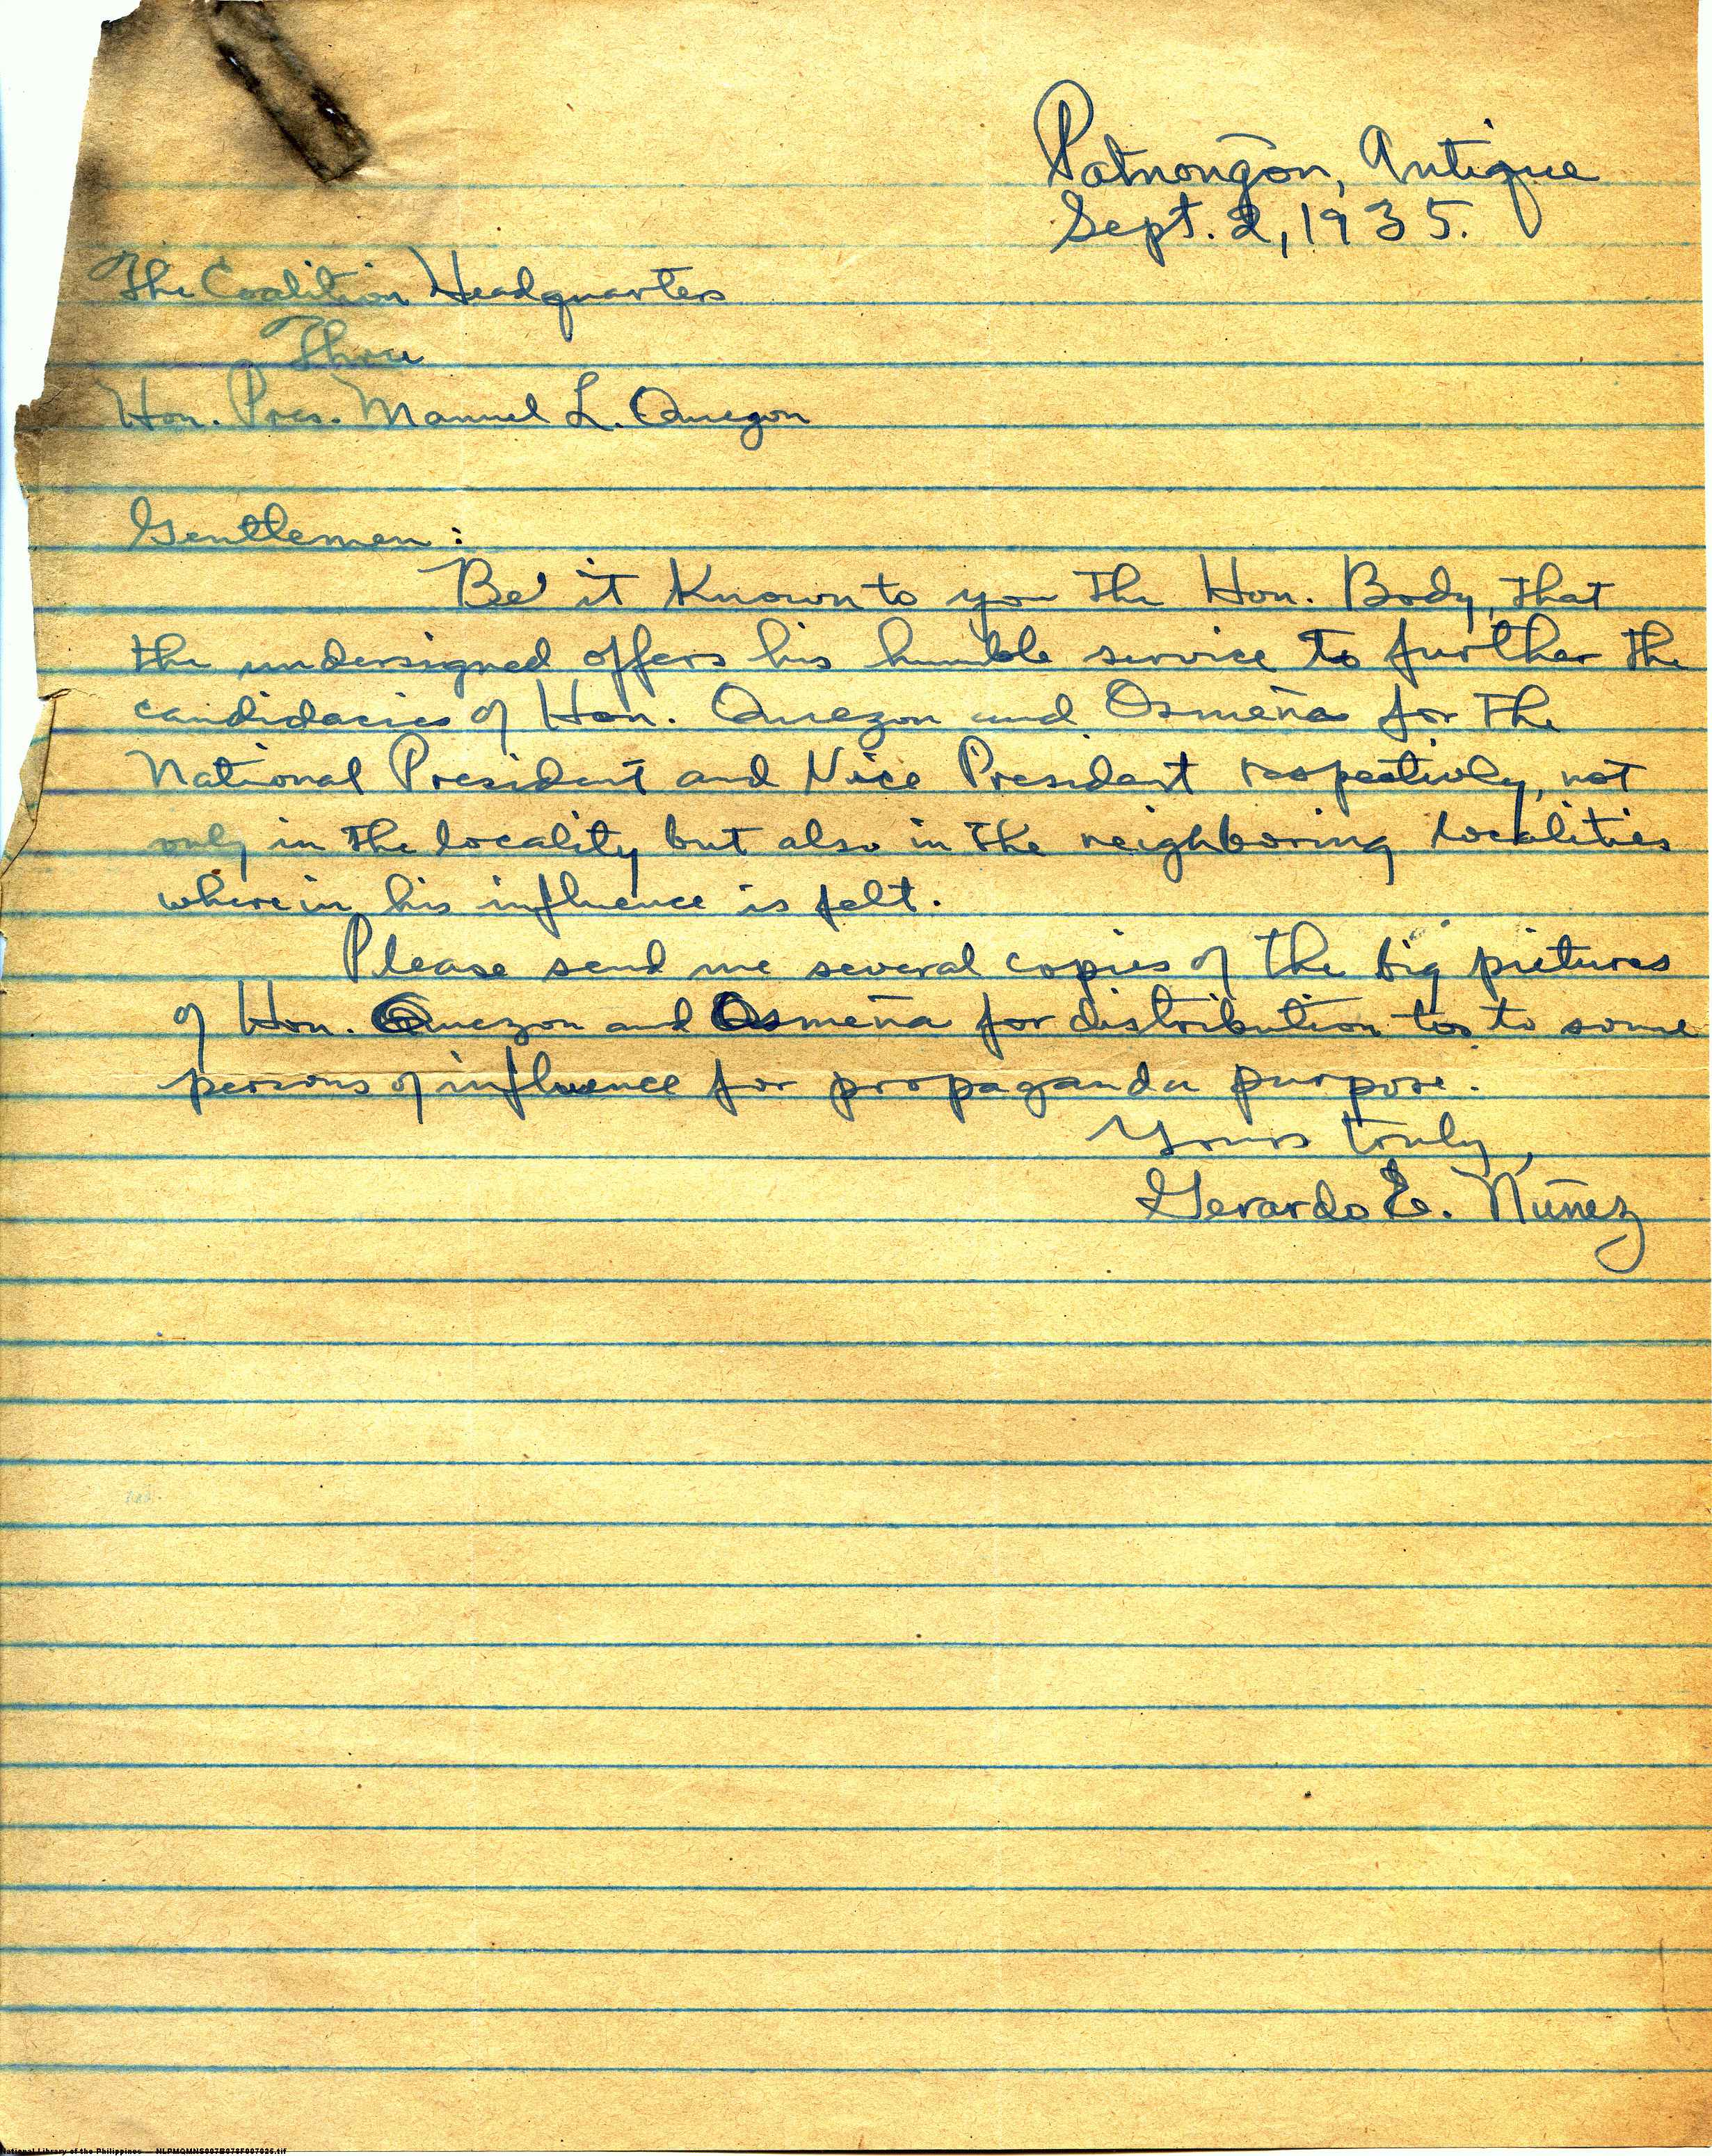 Patnongon, Antique
Sept. 2, 1935.
The Coalition Headquarters
Thru
Hon. Pres. Manuel L. Quezon
Gentlemen:
Be it Known to you the Hon. Body, that
the undersigned offers his humble service to further the
candidacies of Hon. Quezon and Osmeña for the
National President and Vice President respectively, not
only in the locality but also in the neighboring localities
wherein his influence is felt.
Please send me several copies of the big pictures
of Hon. Quezon and Osmeña for distribution to some
persons of influence for propaganda purpose.
Yours truly,
Gerardo E. Núñez
National Library of the Philippines